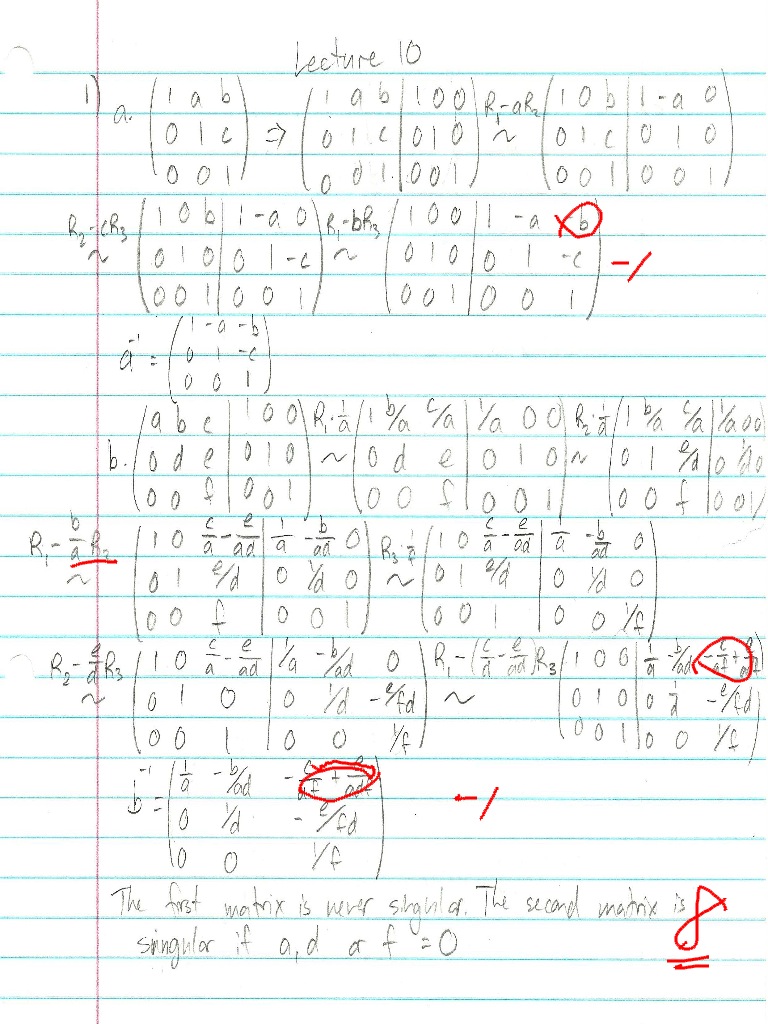 Lecture 10
1) a. ( 1 a b ; 0 1 c ; 0 0 1 ) ⇒ ( 1 a b | 1 0 0 ; 0 1 c | 0 1 0 ; 0 0 1 | 0 0 1 ) R₁-aR₂ ~ ( 1 0 b | 1 -a 0 ; 0 1 c | 0 1 0 ; 0 0 1 | 0 0 1 )
R₂-cR₃ ~ ( 1 0 b | 1 -a 0 ; 0 1 0 | 0 1 -c ; 0 0 1 | 0 0 1 ) R₁-bR₃ ~ ( 1 0 0 | 1 -a -b ; 0 1 0 | 0 1 -c ; 0 0 1 | 0 0 1 ) -1
a⁻¹ = ( 1 -a -b ; 0 1 -c ; 0 0 1 )
b. ( a b c | 1 0 0 ; 0 d e | 0 1 0 ; 0 0 f | 0 0 1 ) R₁·1/a ~ ( 1 b/a c/a | 1/a 0 0 ; 0 d e | 0 1 0 ; 0 0 f | 0 0 1 ) R₂·1/d ~ ( 1 b/a c/a | 1/a 0 0 ; 0 1 e/d | 0 1/d 0 ; 0 0 f | 0 0 1 )
R₁-b/a R₂ ~ ( 1 0 c/a-e/ad | 1/a -b/ad 0 ; 0 1 e/d | 0 1/d 0 ; 0 0 f | 0 0 1 ) R₃·1/f ~ ( 1 0 c/a-e/ad | 1/a -b/ad 0 ; 0 1 e/d | 0 1/d 0 ; 0 0 1 | 0 0 1/f )
R₂-e/d R₃ ~ ( 1 0 c/a-e/ad | 1/a -b/ad 0 ; 0 1 0 | 0 1/d -e/fd ; 0 0 1 | 0 0 1/f ) R₁-(c/a-e/ad)R₃ ~ ( 1 0 0 | 1/a -b/ad -c/af+e/adf ; 0 1 0 | 0 1/d -e/fd ; 0 0 1 | 0 0 1/f )
b⁻¹ = ( 1/a -b/ad -c/af+e/adf ; 0 1/d -e/fd ; 0 0 1/f ) -1
The first matrix is never singular. The second matrix is
sinngular if a, d or f = 0
8